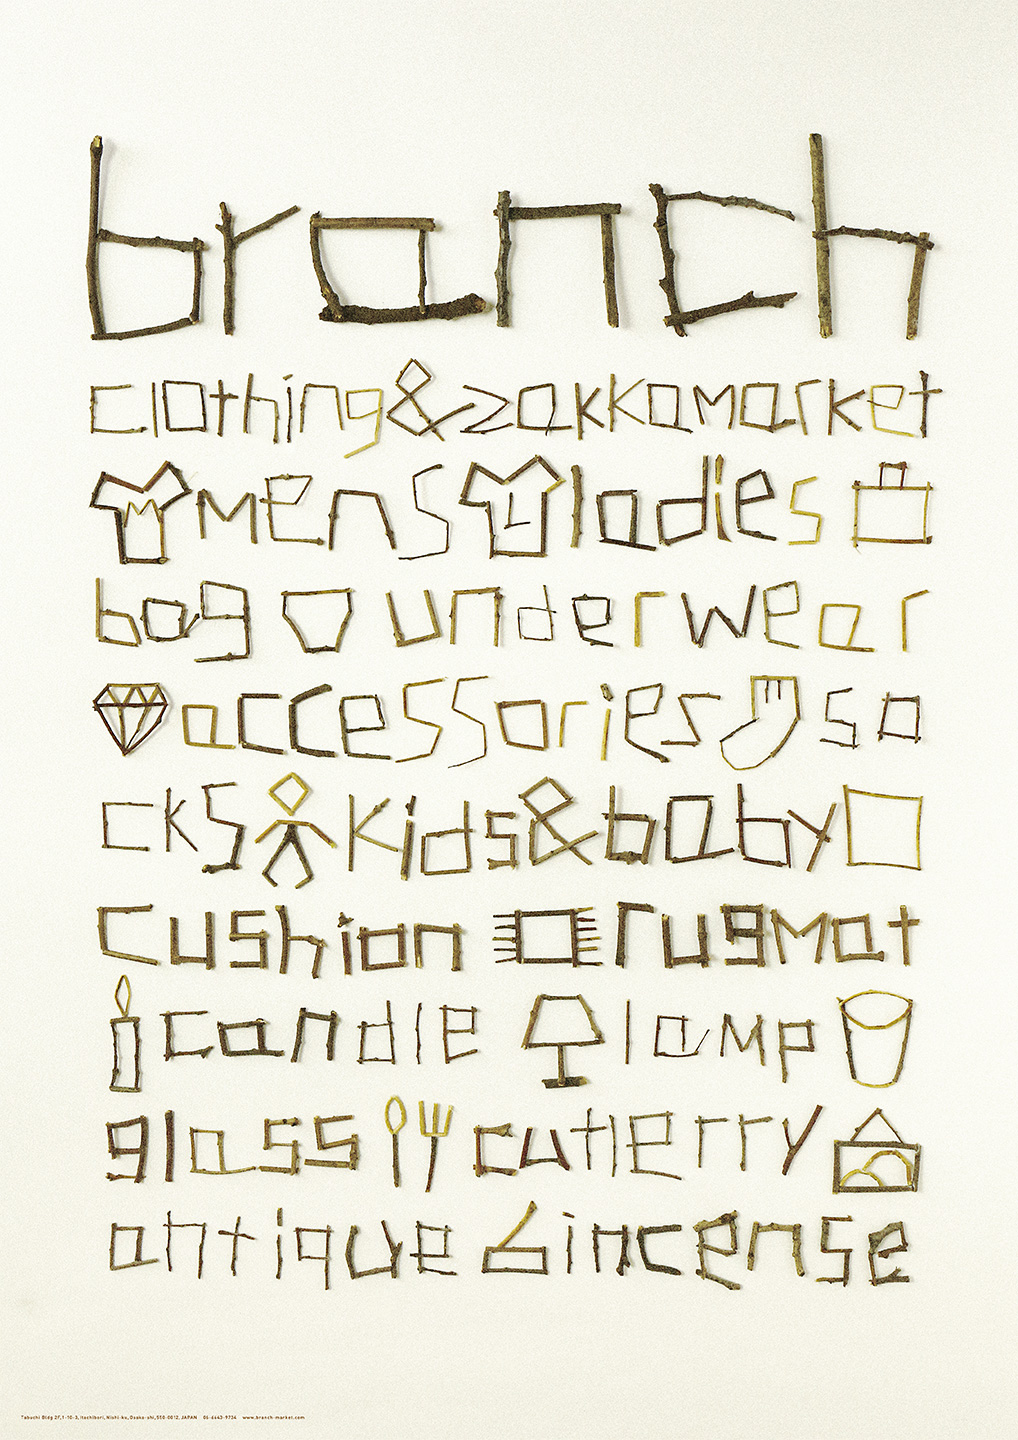 branch
clothing & zakka market
M mens L ladies
bag underwear
accessories so
cks kids & baby
cushion rugmat
candle lamp
glass cutlerry
antique incense
Tabuchi Bldg 2F,1-10-3,Itachibori,Nishi-ku,Osaka-shi,550-0012,JAPAN 06-6643-9734 www.branch-market.com